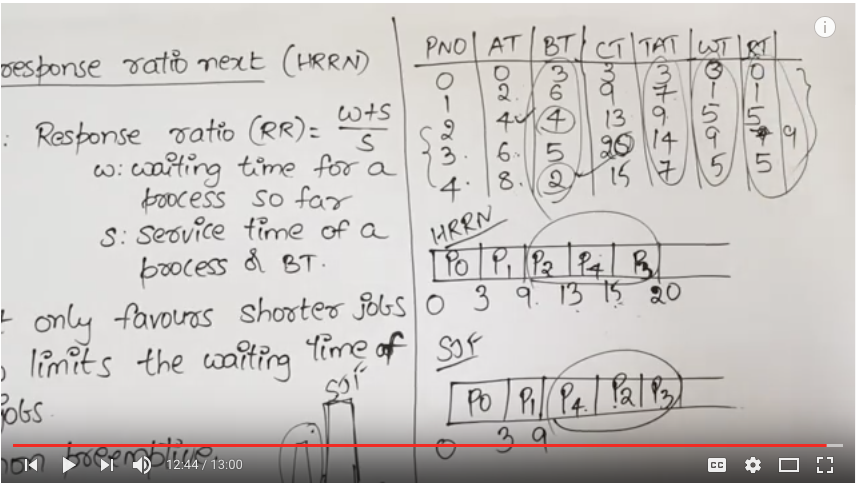 response ratio next (HRRN)
: Response ratio (RR) = w+s
s
w: waiting time for a
process so far
s: Service time of a
process & BT.
only favours shorter jobs
limits the waiting time of
jobs.
non preemptive.
SJF
PNO AT BT CT TAT WT RT
0 0 3 3 3 0
1 2 6 9 7 1 1
2 4 4 13 9 5 5
3. 6 5 20 14 9 9
4. 8. 2 15 7 5 5
HRRN
P0 P1 P2 P4 P3
0 3 9 13 15 20
SJF
P0 P1 P4 P2 P3
0 3 9
12:44 / 13:00
CC
i